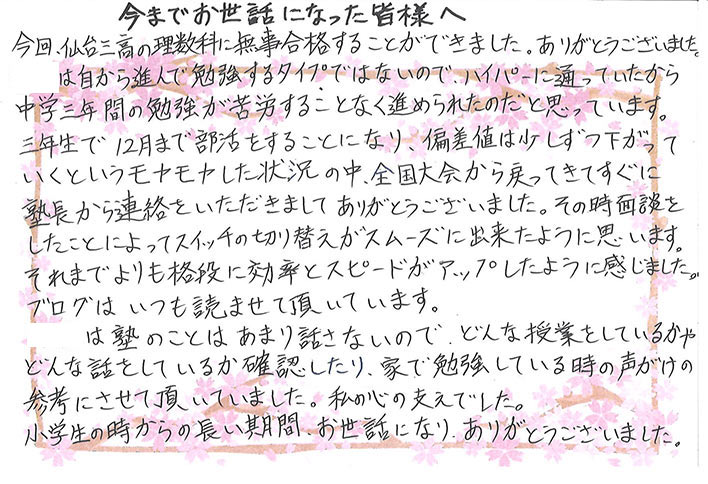 今までお世話になった皆様へ
今回、仙台三高の理数科に無事合格することができました。ありがとうございました。
は自から進んで勉強するタイプではないので、ハイパーに通っていたから
中学三年間の勉強が苦労することなく進められたのだと思っています。
三年生で12月まで部活をすることになり、偏差値は少しずつ下がって
いくというモヤモヤした状況の中、全国大会から戻ってきてすぐに
塾長から連絡をいただきましてありがとうございました。その時面談を
したことによってスイッチの切り替えがスムーズに出来たように思います。
それまでよりも格段に効率とスピードがアップしたように感じました。
ブログはいつも読ませて頂いています。
は塾のことはあまり話さないので、どんな授業をしているかや
どんな話をしているか確認したり、家で勉強している時の声がけの
参考にさせて頂いていました。私の心の支えでした。
小学生の時からの長い期間、お世話になり、ありがとうございました。